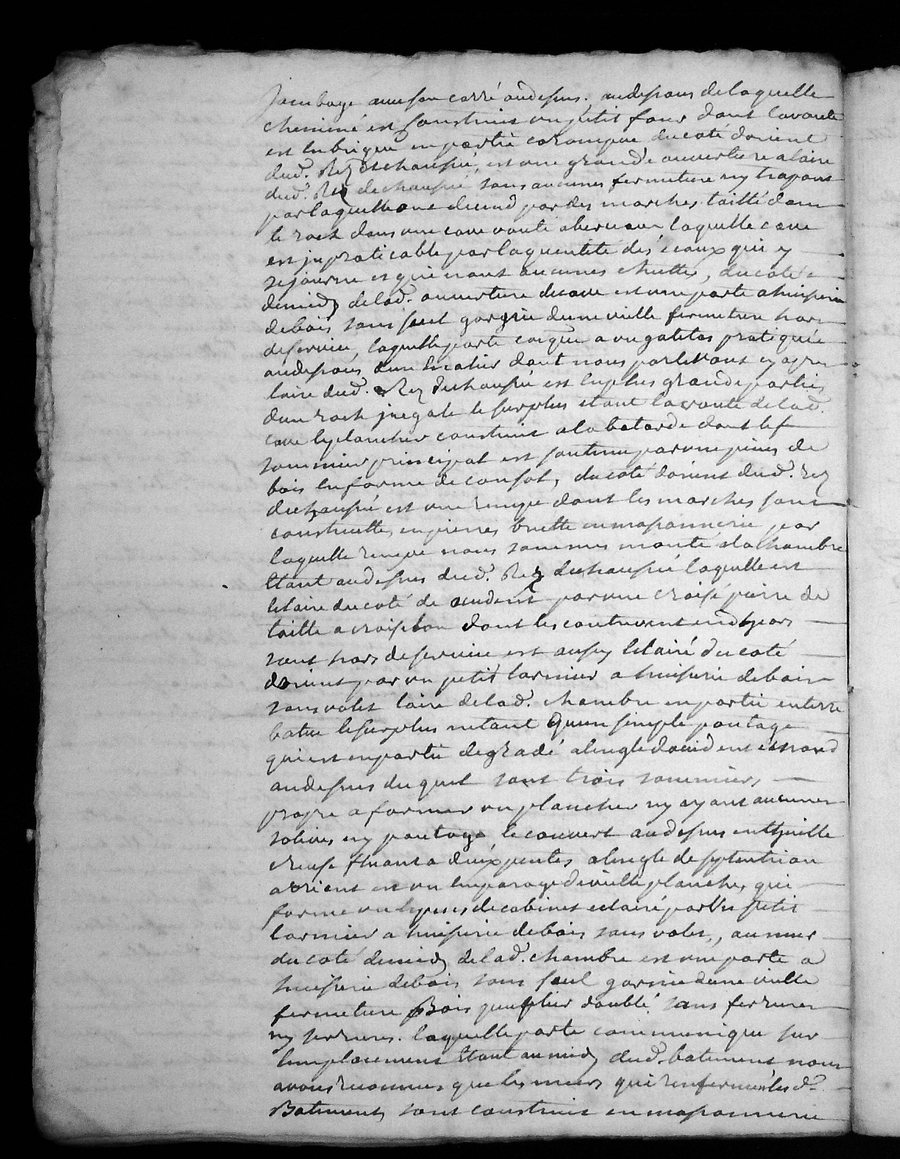 Jambage avec son carré audessus, audessous de laquelle
cheminé est construit un petit four dont la voute
est en brique en partie corompue du coté dorient
dud. Rez dechaussée, est une grande ouverture alaire
dud. Rez dechaussée sans aucunes fermeture ny trapont
par laquelle one descend par des marches taillé dans
le rock dans une cave vouté aberceau laquelle cave
est impraticable par la quentité des eaux qui y
sejourne et qui nont aucunes chuttes, du coté
demidy delad. ouverture decave est une porte a huisserie
debois sans seul garnie dune vielle fermeture hors
deservice, laquelle porte coigne a un galetas pratiqué
audessous dun escalier dont nous parlerons cy apres
laire dud. Rez dechaussée est en plus grande partie
dun rock inegale le surplus etant la voute delad.
cave le plancher construit a la batarde dont le
sommier principal est soutenu par une pieces de
bois en forme de consol, du coté dorient dud. Rez
dechaussée est une rampe dont les marches sont
construittes en pierres brutte en massonnerie, par
laquelle rampe nous sommes monté a la chambre
etant audessus dud. Rez dechaussée laquelle est
eclaire du coté de occident par une croisé pierre de
taille a croisillon dont les contrevent
sont hors deservice est aussy eclairé du coté
dorient par un petit larmier a huisserie debois
sans volet laire delad. chambre en partie enterre
batue le surplus netant quun simple pontage
qui est en partie degradé alengle doccident et
audessus du quel sont trois sommiers
propre a former un plancher ny ayant aucunes
solives ny pontage le couvert audessus enthuille
creuse fluant a deux pentes alengle de septentrion
a orient est un emparage de vielle planches qui
forme un espesses de cabinet eclairé par un petit
larmier a huisserie debois sans volet, au mur
du coté demidy delad. chambre est une porte a
huisserie debois sans seul garnie dune vielle
fermeture Bois peuplier doublé sans ferrures
ny serrures. laquelle porte communique sur
lemplacement etant au midy dud. batiment nous
avons reconnus que les murs qui renferment les d.
Batiments sont construits en massonnerie